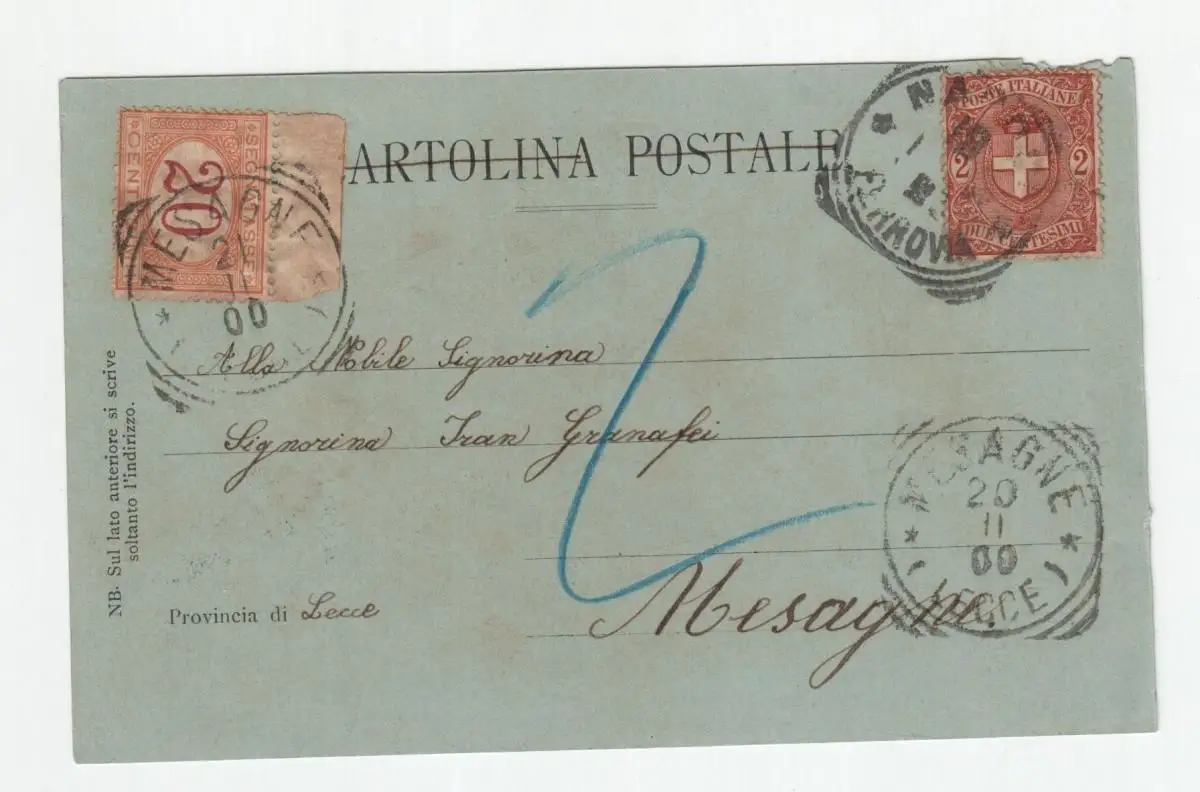 CARTOLINA POSTALE
POSTE ITALIANE
2 2
DUE CENTESIMI
20
FERROVIA
MESAGNE
21
11
00
Alla Nobile Signorina
Signorina Iran Granafei
Mesagne.
Provincia di Lecce
NB. Sul lato anteriore si scrive
soltanto l'indirizzo.
MESAGNE
20
11
00
(LECCE)